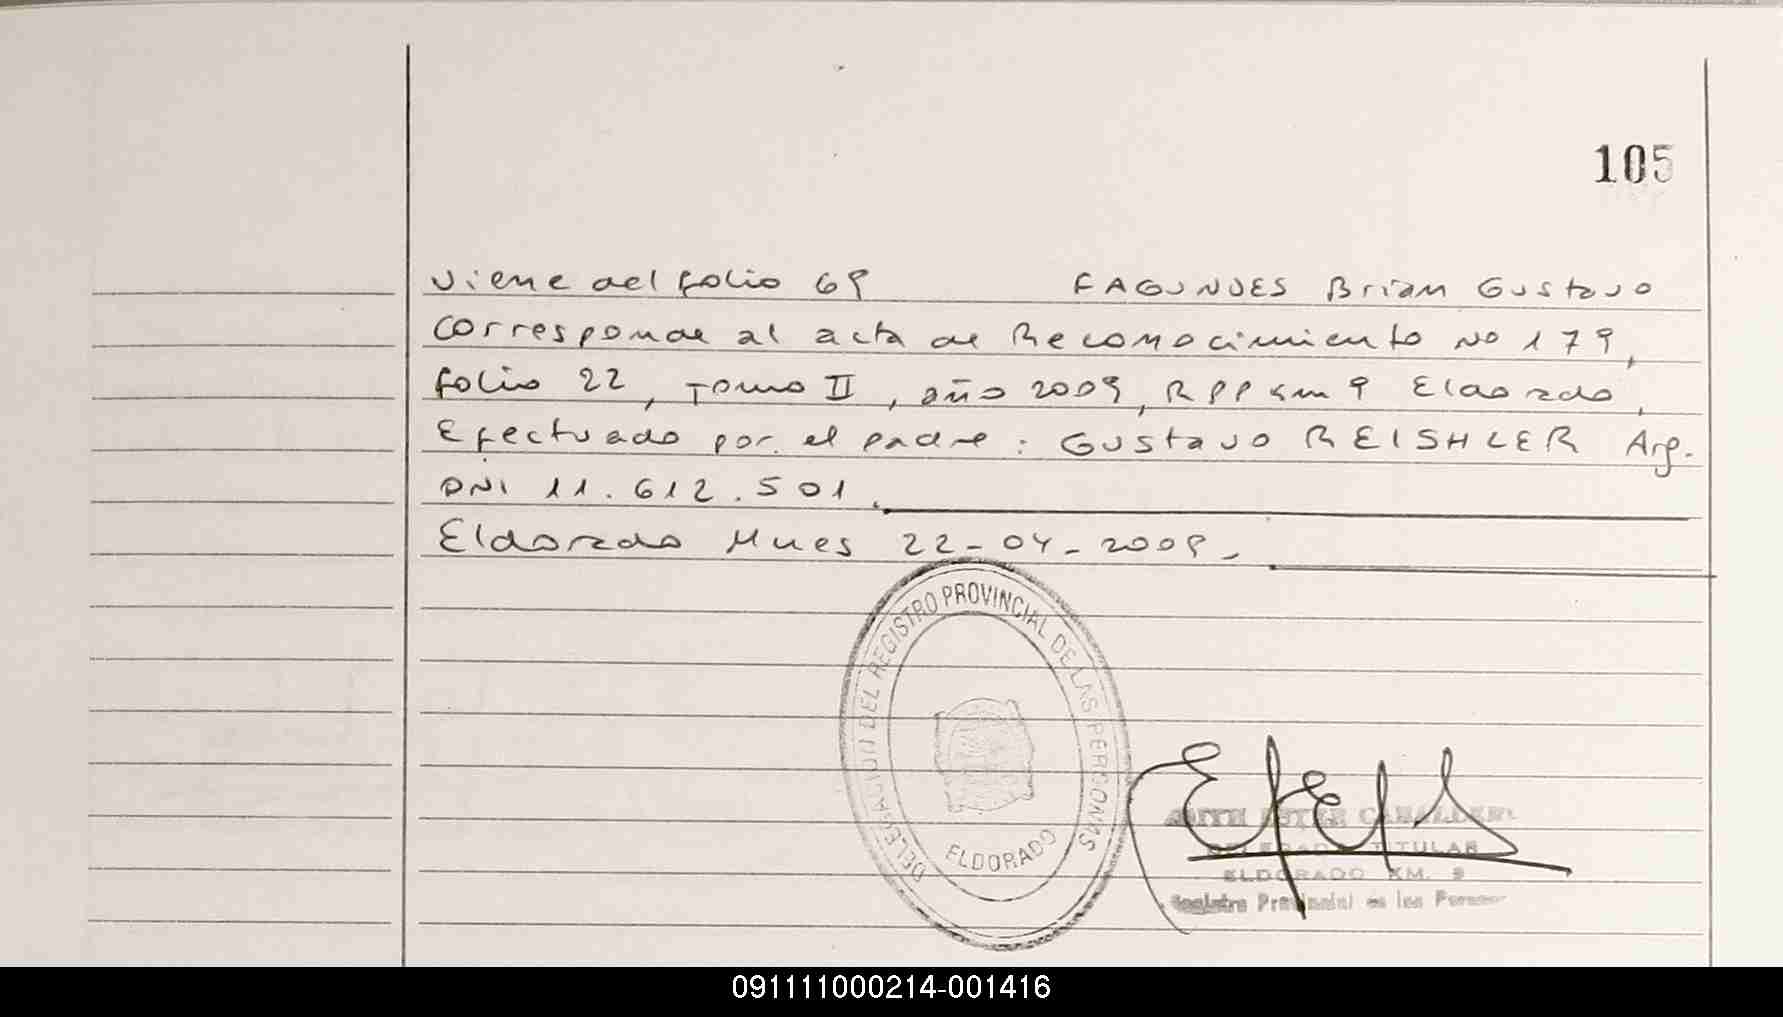 105
Viene del folio 69 FAGUNDES Brian Gustavo
Corresponde al acta de Reconocimiento No 179,
folio 22, Tomo II, año 2009, RPP Km 9 Eldorado,
Efectuado por el padre: Gustavo REISHLER Arg.
DNI 11.612.501.
Eldorado Mnes 22-04-2009.-
DELEGACION DEL REGISTRO PROVINCIAL DE LAS PERSONAS
ELDORADO
DELEGADO TITULAR
ELDORADO KM. 9
Registro Provincial de las Personas
091111000214-001416